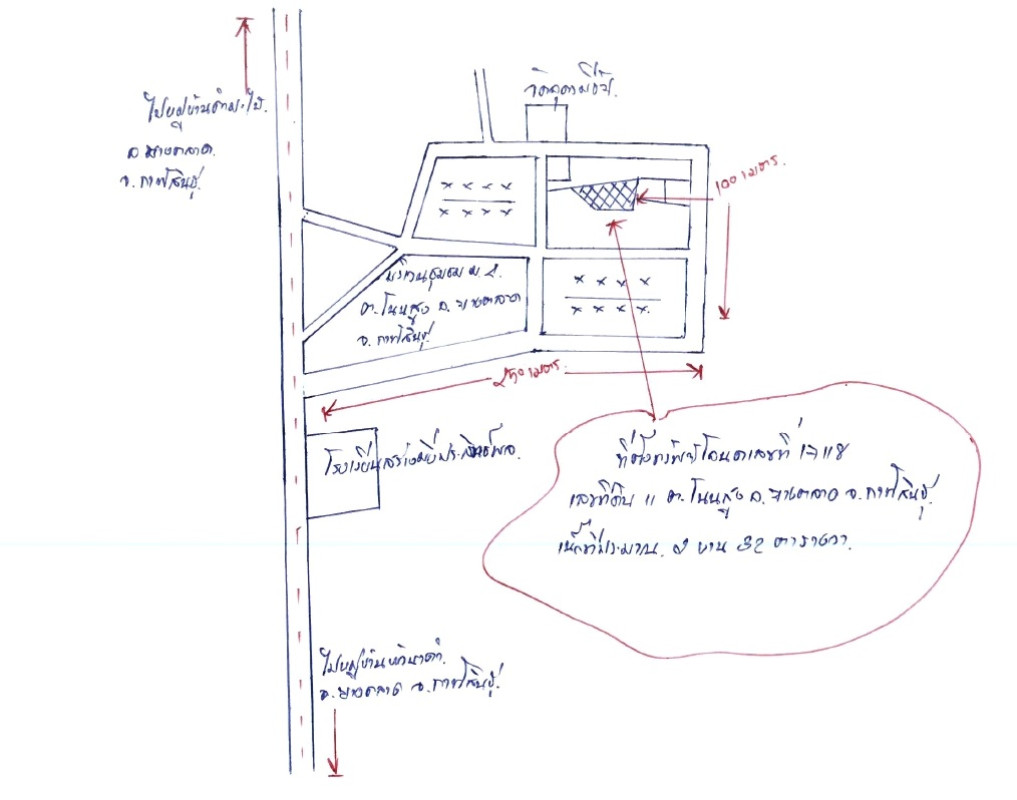 ไปหมู่บ้านคำมะไป้.
อ.ยางตลาด
จ.กาฬสินธุ์
100 เมตร.
บริเวณชุมชน ม.2.
ต.โนนสูง อ.ยางตลาด
จ.กาฬสินธุ์
250 เมตร.
โรงเรียน
ที่ตั้งทรัพย์โฉนดเลขที่
เลขที่ดิน 11 ต.โนนสูง อ.ยางตลาด จ.กาฬสินธุ์.
เนื้อที่ประมาณ. 2 งาน 32 ตารางวา.
ไปหมู่บ้านหัวนาคำ.
อ.ยางตลาด จ.กาฬสินธุ์.